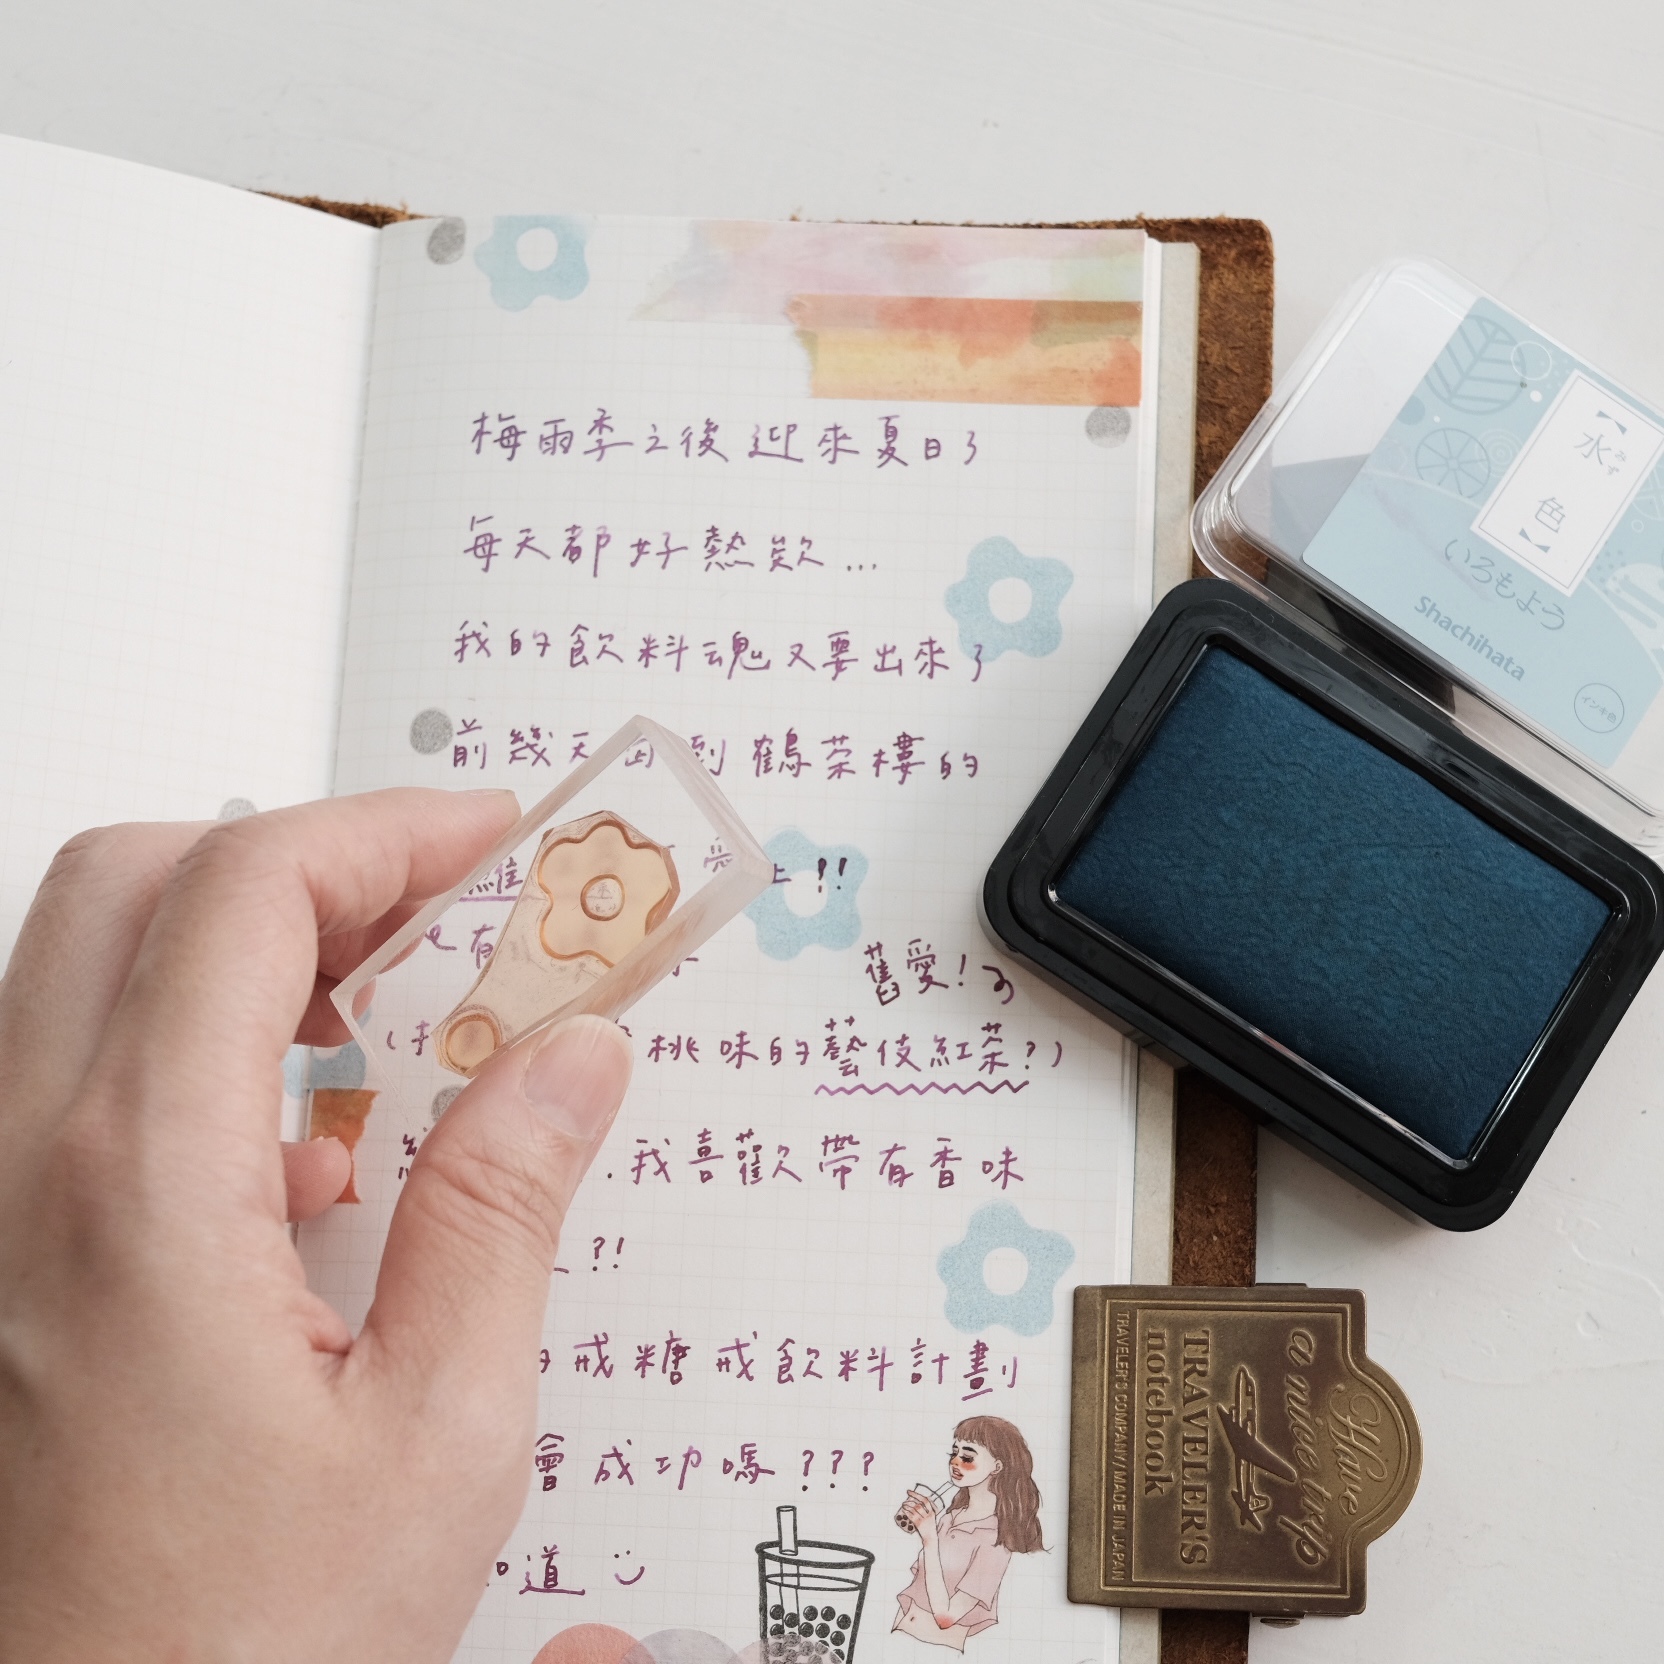 梅雨季之後迎來夏日了
每天都好熱欸...
我的飲料魂又要出來了
前幾天 到鶴茶樓的
上!!
舊愛!
桃味的藝伎紅茶?)
我喜歡帶有香味
?!
戒糖戒飲料計劃
會成功嗎???
道
【水色】
みず
いろもよう
Shachihata
インキ色
Have
a nice trip
TRAVELER'S
notebook
TRAVELER'S COMPANY / MADE IN JAPAN